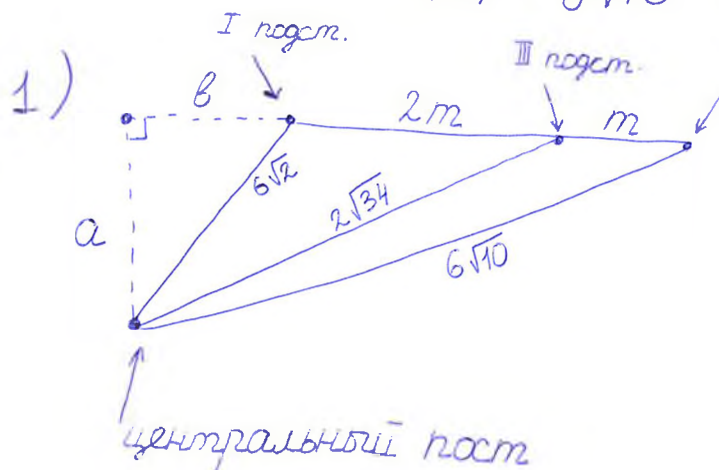 I подст.
III подст.
1)
в
2m
m
а
6√2
2√34
6√10
центральный пост